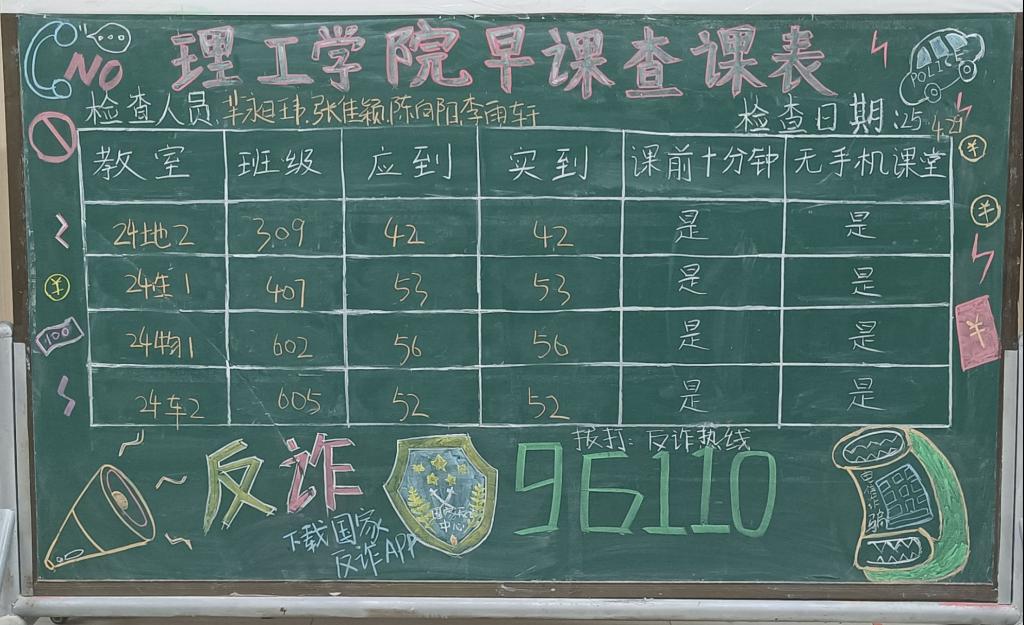 NO
理工学院早课查课表
检查人员:芈永日玮.张佳颖.陈向阳李雨轩
检查日期:25 4.29
POLICE
教室 班级 应到 实到 课前十分钟 无手机课堂
24地2 309 42 42 是 是
24生1 407 53 53 是 是
24物1 602 56 56 是 是
24车2 605 52 52 是 是
¥
¥
¥
100
¥
反诈
下载国家
反诈APP
国家反诈
中心
拨打:反诈热线
96110
电信诈骗